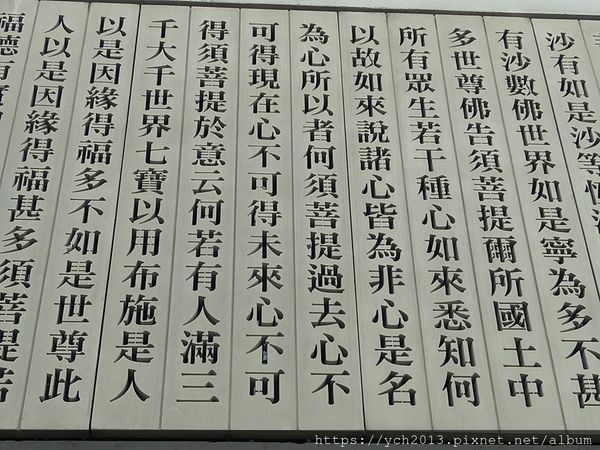 沙有如是沙等恆河
有沙數佛世界如是寧為多不甚
多世尊佛告須菩提爾所國土中
所有眾生若干種心如來悉知何
以故如來說諸心皆為非心是名
為心所以者何須菩提過去心不
可得現在心不可得未來心不可
得須菩提於意云何若有人滿三
千大千世界七寶以用布施是人
以是因緣得福多不如是世尊此
人以是因緣得福甚多須菩提若
福德有實
https://ych2013.pixnet.net/album